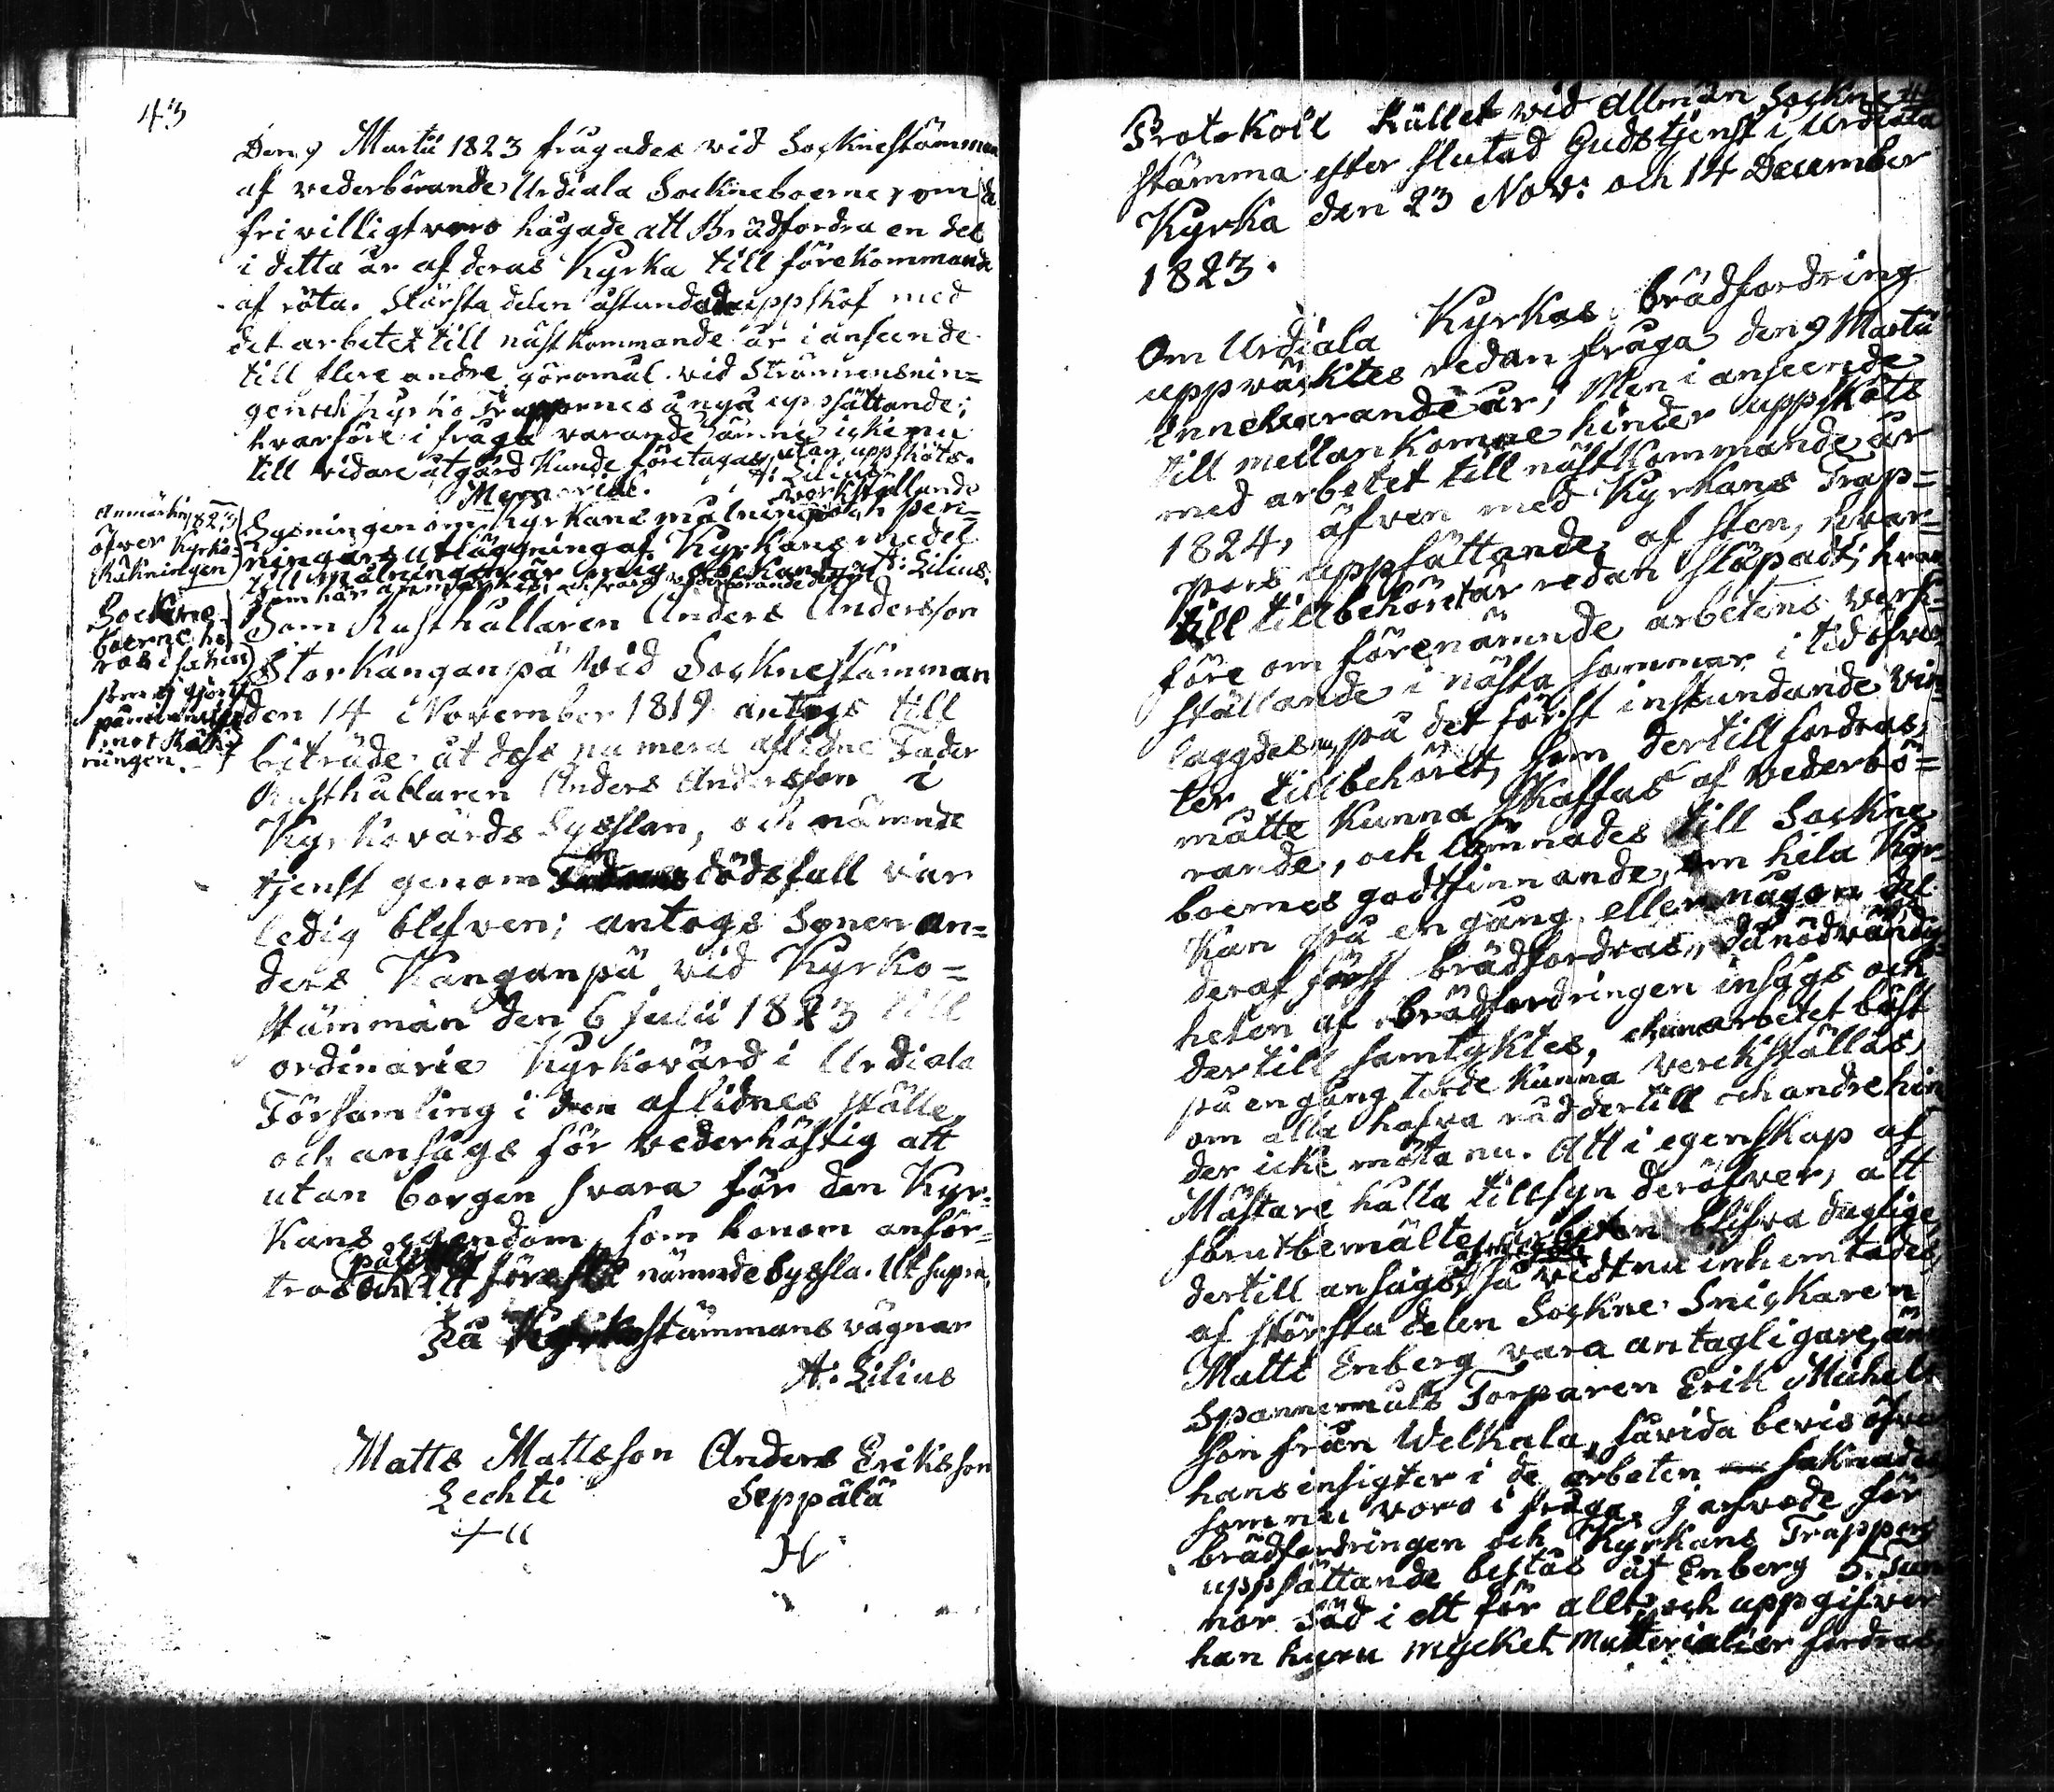 43
Den 9 Martii 1823 frågades vid Socknestämman
af vederbörande Urdiala Sockneboerne, om de
frivilligt voro hågade att Brädfordra en del
i detta år af deras Kyrka till förekommande
af röta. Största delen åstundade uppskof med
det arbetet till nästkommande år i anseende
till flere andre göromål vid Strömrensnin=
gen och Kyrko Trappornes å nya uppsättande;
hvarföre i fråga varande ämne icke nu
till vidare åtgärd kunde företagas, utan uppsköts.
A: Lilius
Memorial.
verkställande
Lysningen om Kyrkans målning och pen=
ningars utläggning af Kyrkans medel
till målningen är mig obekant. A: Lilius.
Anmärkn 1823
öfver Kyrko=
Räkningen
Sockne
boerne hö
ras i saken
som ej gjort
påminnelse
mot Räk
ningen.
Som Rusthållaren Anders Andersson
Storkanganpä vid Socknestämman
den 14 November 1819 antogs till
biträde åt dess nu mera aflidne Fader
Rusthållaren Anders Andersson i
Kyrkovärds Sysslan, och nämnde
tjenst genom dödsfall var
ledig blefven; antogs Sonen An=
ders Kanganpä vid Kyrko=
stämman den 6 Julii 1823 till
ordinarie Kyrkovärd i Urdiala
Församling i den aflidnes ställe,
och ansågs för vederhäftig att
utan borgen svara för den Kyr=
kans egendom, som honom anför=
tros och att förestå nämnde syssla. Ut supra,
På Kyrkostämmans vägnar
A: Lilius
Matts Mattsson Anders Eriksson
Lechti Seppälä
Protokoll hållet vid allmän Sockne
stämma efter slutad Gudstjenst i Urdiala
Kyrka den 23 Nov: och 14 December
1823.
Om Urdiala Kyrkas brädfordring
uppväcktes redan fråga den 9 Martii
innevarande år; Men i anseende
till mellankomne hinder uppsköts
med arbetet till nästkommande år
1824, äfven med Kyrkans Trap=
pors uppsättande af sten, hvar=
till tillbehör är redan släpadt; hvar
före om förenämnde arbetens verk=
ställande i nästa sommar i tid öfver
laggdes nu, på det först instundande vin
ter tillbehöret, som dertill fordras,
måtte kunna skaffas af vederbö=
rande, och lämnades till Sockne
boernes godtfinnande, om hela Kyr
kan på en gång eller någon del
deraf först brädfordras, då nödvändig
heten af brädfordringen insågs och
dertill samtyktes, ehuru arbetet bäst
på en gång torde kunna verckställas,
om alla hafva råd dertill och andre hin
der icke möta nu. Att i egenskap af
Mästare hålla tillsyn deröfver, att
förutbemälte arbeten blifva duglige
dertill ansågs, så vidt nu inhemtades
af största delen Sockne Snickaren
Matts Enberg vara antagligare, än
Spannermults Torparen Erik Michels
son från Welkala, såvida bevis öfver
hans insigter i de arbeten saknades
som nu voro i fråga. J arfvode för
brädfordringen och Kyrkans Trappors
uppsättande bestås åt Enberg 5. Tun
nor Säd i ett för allt, och uppgifver
han huru mycket Materialier fordras,